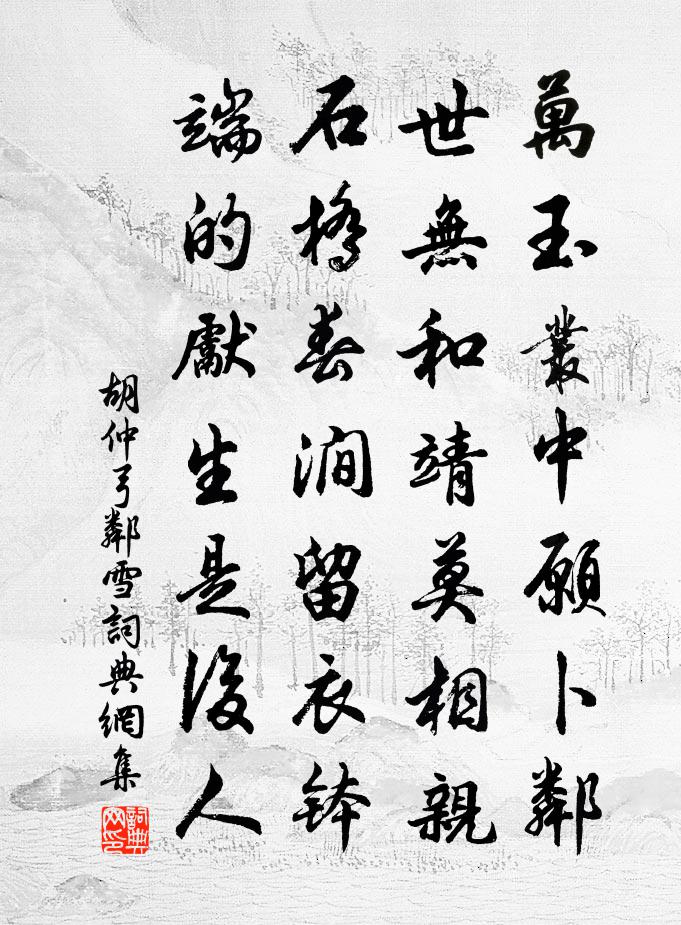 萬玉叢中願卜鄰
世無和靖莫相親
石橋春澗留衣鉢
端的獻生是後人
胡仲弓鄰雪詞典網集
詞典網印